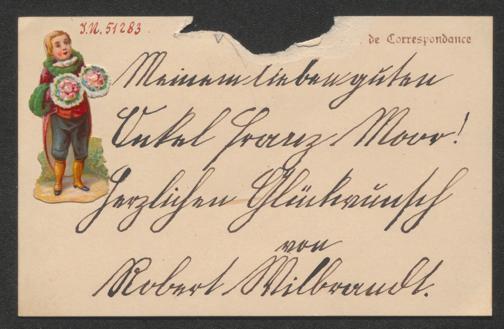 J.N. 51283
de Correspondance
Meinem lieben guten
Onkel Franz Moor!
Herzlichen Glückwunsch
von
Robert Wilbrandt.